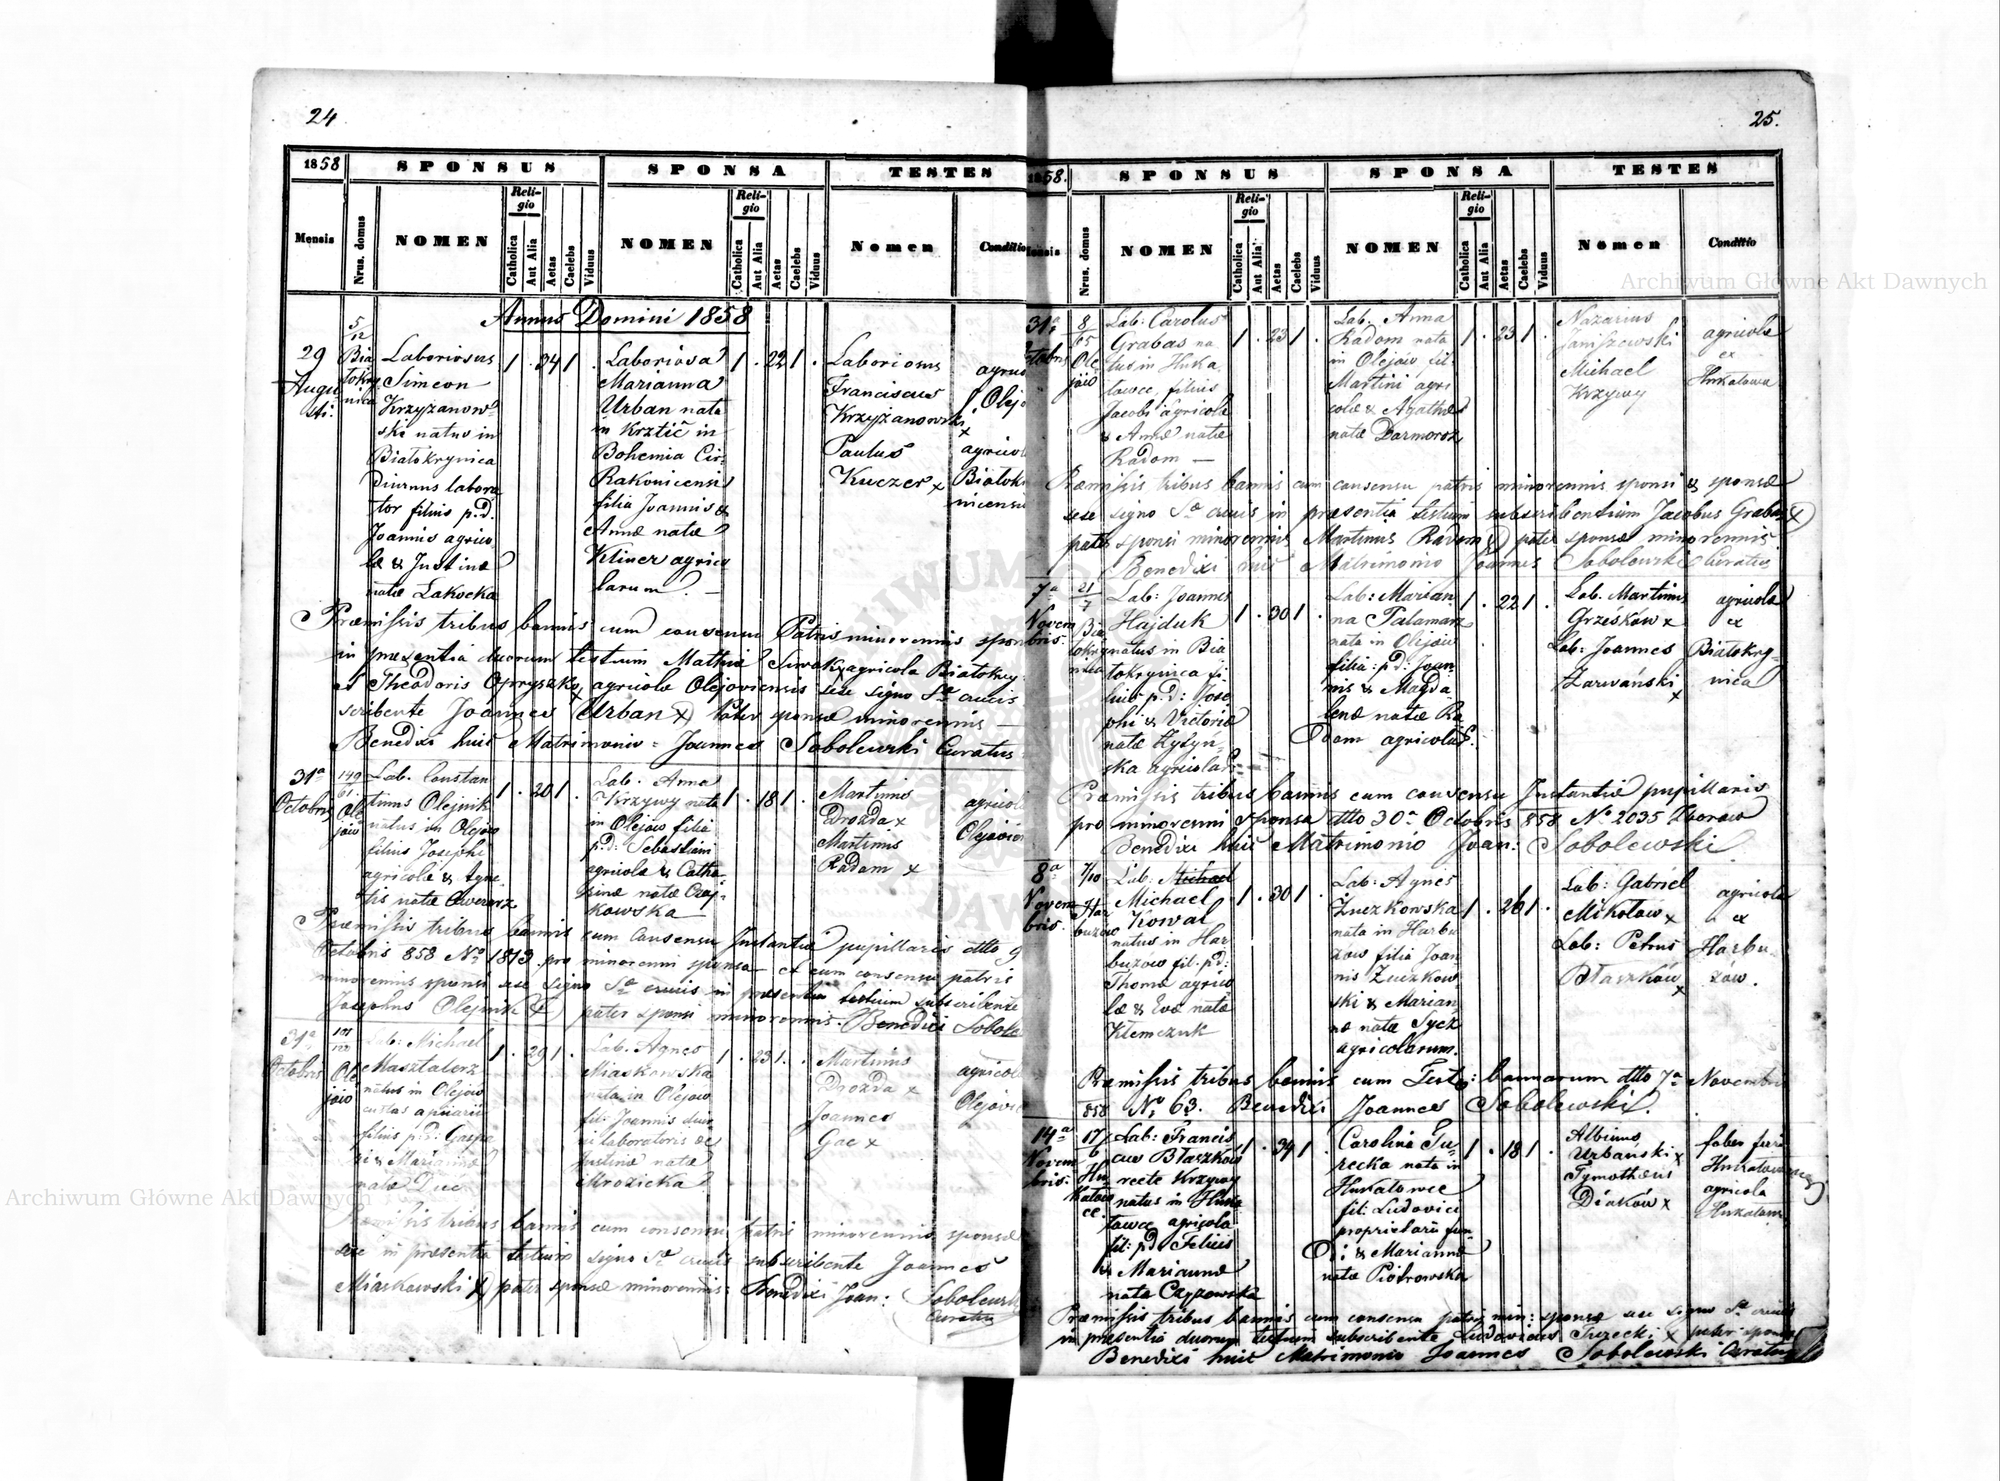 24
1858
SPONSUS
SPONSA
TESTES
Mensis
Nrus. domus
NOMEN
Religio
Catholica
Aut Alia
Aetas
Caelebs
Viduus
NOMEN
Religio
Catholica
Aut Alia
Aetas
Caelebs
Viduus
Nomen
Conditio
Annus Domini 1858
29
Augu
sti.
5/12
Bia
łokry
nica
Laboriosus
Simeon
Krzyżanow
ski natus in
Białokrynica
diurnus labora
tor filius p.d.
Joannis agrico
læ & Justinæ
natæ Lakocka
1 . 34 1 .
Laboriosa
Marianna
Urban nata
in Krztič in
Bohemia Cir:
Rakonicensi
filia Joannis &
Annæ natæ
Kliner agrico
larum.
1 . 22 1 .
Laboriosus
Franciscus
Krzyżanowski
x
Paulus
Kuczer x
agricol
Białok
nicensis
Præmissis tribus bannis cum consensu Patris minorennis sponsæ
in præsentia duorum testium Mathiæ Siwak x agricola Białokry
& Theodoris Opryszko x agricola Olejoviensis sese signo Stæ crucis
scribente Joannes Urban x Pater sponsæ minorennis
Benedixi huic Matrimonio = Joannes Sobolewski Curatus
31a
Octobris
149
61.
Ole
jów
Lab. Constan
tinus Olejnik
natus in Olejów
filius Josephi
agricolæ & Agne
tis natæ
1 . 20 1 .
Lab. Anna
Krzywy nata
in Olejów filia
p.d. Sebastiani
agricolæ & Catha
rinæ natæ Czaj
kowska
1 . 18 1 .
Martinus
Drozda x
Martinus
Radom x
agricol
Olejów
Præmissis tribus bannis cum Consensu Instantiæ pupillaris dtto 9
Octobris 858 No 1813 pro minorenni sponsa et cum consensu patris
minorennis sponsi sese signo Stæ crucis in præsentia testium subscribente
Josephus Olejnik x pater sponsi minorennis. Benedixi Sobole
31a
Octobris
Ole
jów
Lab: Michael
Masztalerz
natus in Olejów
custos apiarii
filius p.d. Gaspa
ri & Mariannæ
natæ Duc
1 . 29 1 .
Lab. Agnes
Miaskowska
nata in Olejów
fil: Joannis diur
ni laboratoris &
Justinæ natæ
Mrozicka
1 . 23 1 .
Martinus
Drozda x
Joannes
Gac x
agricol
Olejów
Præmissis tribus bannis cum consensu patris minorennis sponsæ
sese in præsentia testium signo Stæ crucis subscribente Joannes
Miaskowski x pater sponsæ minorennis Benedixi Joan: Sobolewski
Curatus
25.
1858.
SPONSUS
SPONSA
TESTES
Mensis
Nrus. domus
NOMEN
Religio
Catholica
Aut Alia
Aetas
Caelebs
Viduus
NOMEN
Religio
Catholica
Aut Alia
Aetas
Caelebs
Viduus
Nomen
Conditio
31a
tobris
8
65
Ole
jów
Lab: Carolus
Grabas na
tus in Huka
łowce, filius
Jacobi agricolæ
& Annæ natæ
Radom
1 . 23 1 .
Lab. Anna
Radom nata
in Olejów fil:
Martini agri
colæ & Agathæ
natæ Darmorosz
1 . 23 1 .
Nazarius
Janiszewski
Michael
Krzywy
agricolæ
ex
Hukałowce
Præmissis tribus bannis cum consensu patris minorennis sponsi & sponsæ
sese signo Stæ crucis in præsentia testium subscribentium Jacobus Grabas x
pater sponsi minorennis Martinus Radom x pater sponsæ minorennis
Benedixi huic Matrimonio Joannes Sobolewski Curatus
7a
Novem
bris.
21
7
Bia
łokry
nica
Lab: Joannes
Hajduk
natus in Bia
łokrynica fi
lius p.d: Jose
phi & Victoriæ
natæ Łyżyń
ska agricolar:
1 . 30 1 .
Lab: Marian
na Talamarz
nata in Olejów
filia: p.d: Joan
nis & Magda
lenæ natæ Ra
dom agricolar:
1 . 22 1 .
Lab. Martinus
Grześków x
Lab: Joannes
Zarwański
x
agricolæ
ex
Białokry
nica
Præmissis tribus bannis cum consensu Instantiæ pupillaris
pro minorenni Sponsa dtto 30a Octobris 858 No 2035 Zborow
Benedixi huic Matrimonio Joan: Sobolewski
8a
Novem
bris.
7/10
Har
buzów
Lab: Michael
Michael
Kowal
natus in Har
buzów fil: p.d:
Thomæ agrico
læ & Evæ natæ
Klemczuk
1 . 30 1 .
Lab: Agnes
Zuczkowska
nata in Harbu
zów filia Joan
nis Zuczkow
ski & Marian
næ natæ Sycz
agricolarum.
1 . 26 1 .
Lab: Gabriel
Mikołow x
Lab: Petrus
Błaszków
x
agricolæ
ex
Harbu
zów.
Præmissis tribus bannis cum Testo: bannorum dtto 7a Novembris
858 No 63. Benedixi Joannes Sobolewski.
14a
Novem
bris.
17
6
Hu
kałow
ce.
Lab: Francis
cus Błaszków
recte Krzywy
natus in Huka
łowce agricola
fil: p.d: Felicis
& Mariannæ
natæ Czyżowska
1 . 34 1 .
Carolina Tu
recka nata in
Hukałowce
fil: Ludovici
proprietarii fun
di & Mariannæ
natæ Piotrowska
1 . 18 1 .
Albinus
Urbański x
Tymotheus
Diaków x
faber
Hukałowce
agricola
Hukałow
Præmissis tribus bannis cum consensu patris min: sponsæ sese signo Stæ crucis
in præsentia duorum testium subscribente Ludovicus Turecki x pater sponsæ
Benedixi huic Matrimonio Joannes Sobolewski Curatus
Archiwum Główne Akt Dawnych
Archiwum Główne Akt Dawnych